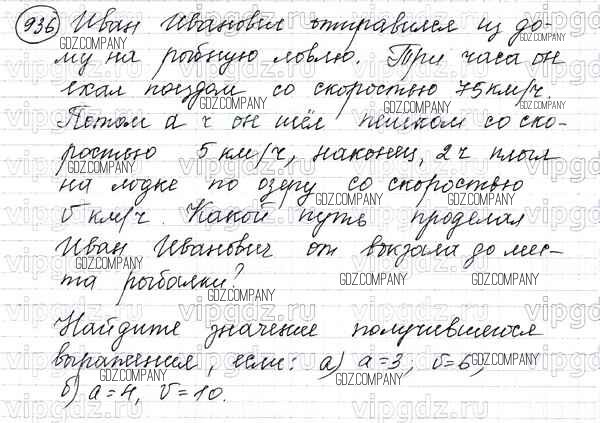 936 Иван Иванович отправился из до-
му на рыбную ловлю. Три часа он
ехал поездом со скоростью 75 км/ч.
Потом a ч он шёл пешком со ско-
ростью 5 км/ч, наконец, 2 ч плыл
на лодке по озеру со скоростью
v км/ч. Какой путь проделал
Иван Иванович от вокзала до мес-
та рыбалки?
Найдите значение получившегося
выражения, если: а) a=3; v=6;
б) a=4, v=10.
GDZ.COMPANY
vipgdz.ru